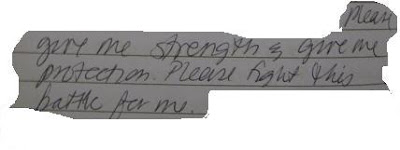 Please
give me strength & give me
protection. Please fight this
battle for me.